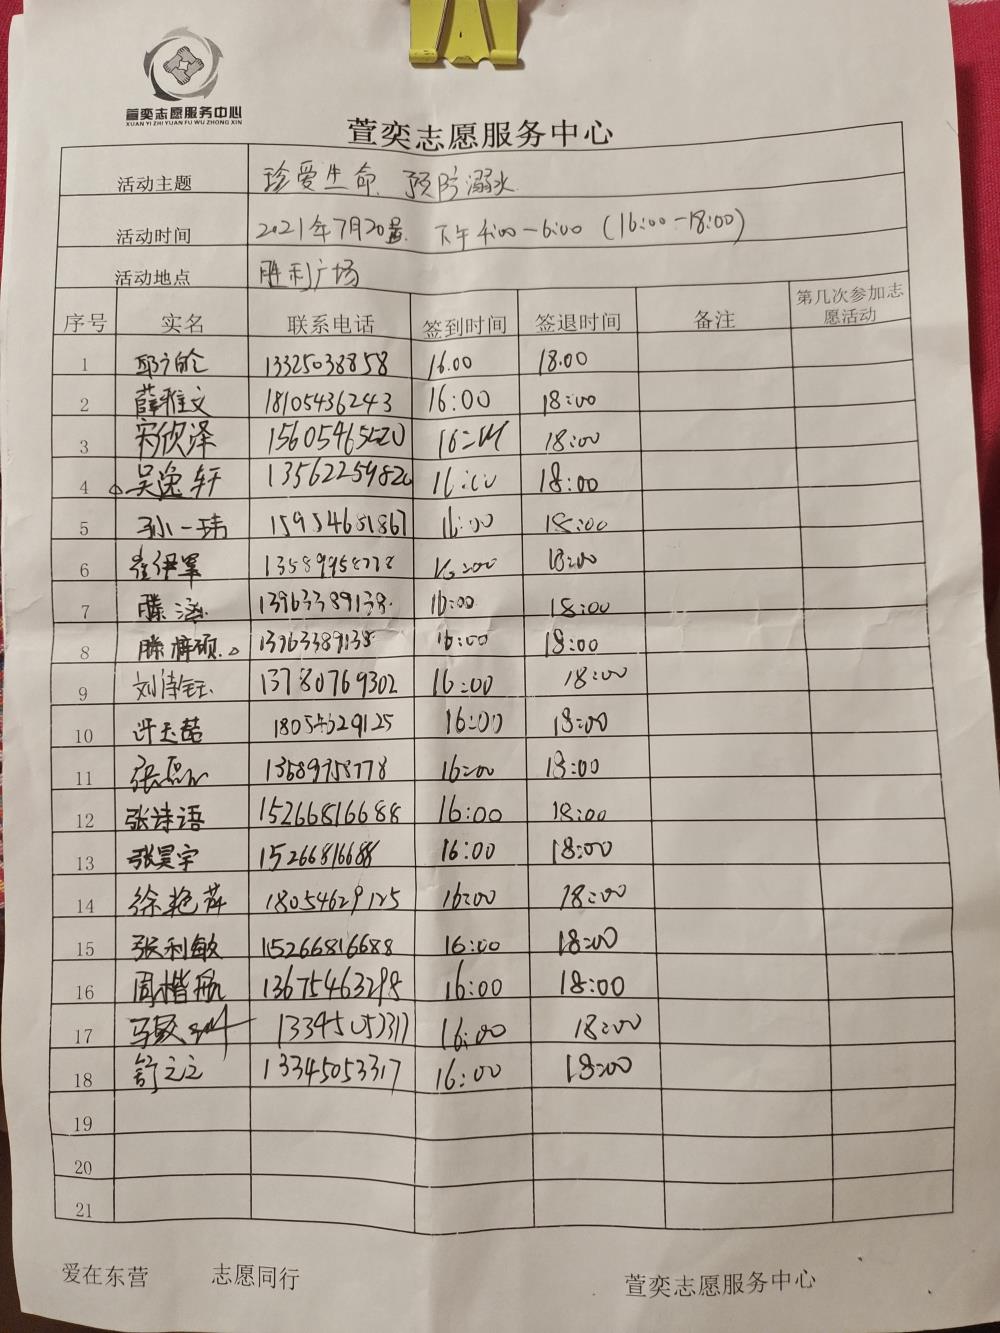 萱奕志愿服务中心
XUAN YI ZHI YUAN FU WU ZHONG XIN
萱奕志愿服务中心
活动主题 珍爱生命、预防溺水
活动时间 2021年7月20 下午4:00-6:00 (16:00-18:00)
活动地点 胜利广场
序号 实名 联系电话 签到时间 签退时间 备注 第几次参加志愿活动
1 13325038858 16.00 18.00
2 薛雅文 18105436243 16:00 18:00
3 宋欣泽 15605465520 18:00
4 吴逸轩 13562259820 16:00 18:00
5 孙一玮 15954681867 16:00 18:00
6 崔伊罩 16:00 18:00
7 滕涵 13963389138 16:00 18:00
8 滕梓硕 13963389138 16:00 18:00
9 刘诗钰 13780769302 16:00 18:00
10 许玉喆 18054629125 16:00 18:00
11 16:00 18:00
12 张诗语 15266816688 16:00 18:00
13 张昊宇 15266816688 16:00 18:00
14 徐艳萍 18054629125 16:00 18:00
15 张利敏 15266816688 16:00 18:00
16 周楷航 13675463298 16:00 18:00
17 13345053317 16:00 18:00
18 舒之之 13345053317 16:00 18:00
19
20
21
爱在东营 志愿同行 萱奕志愿服务中心